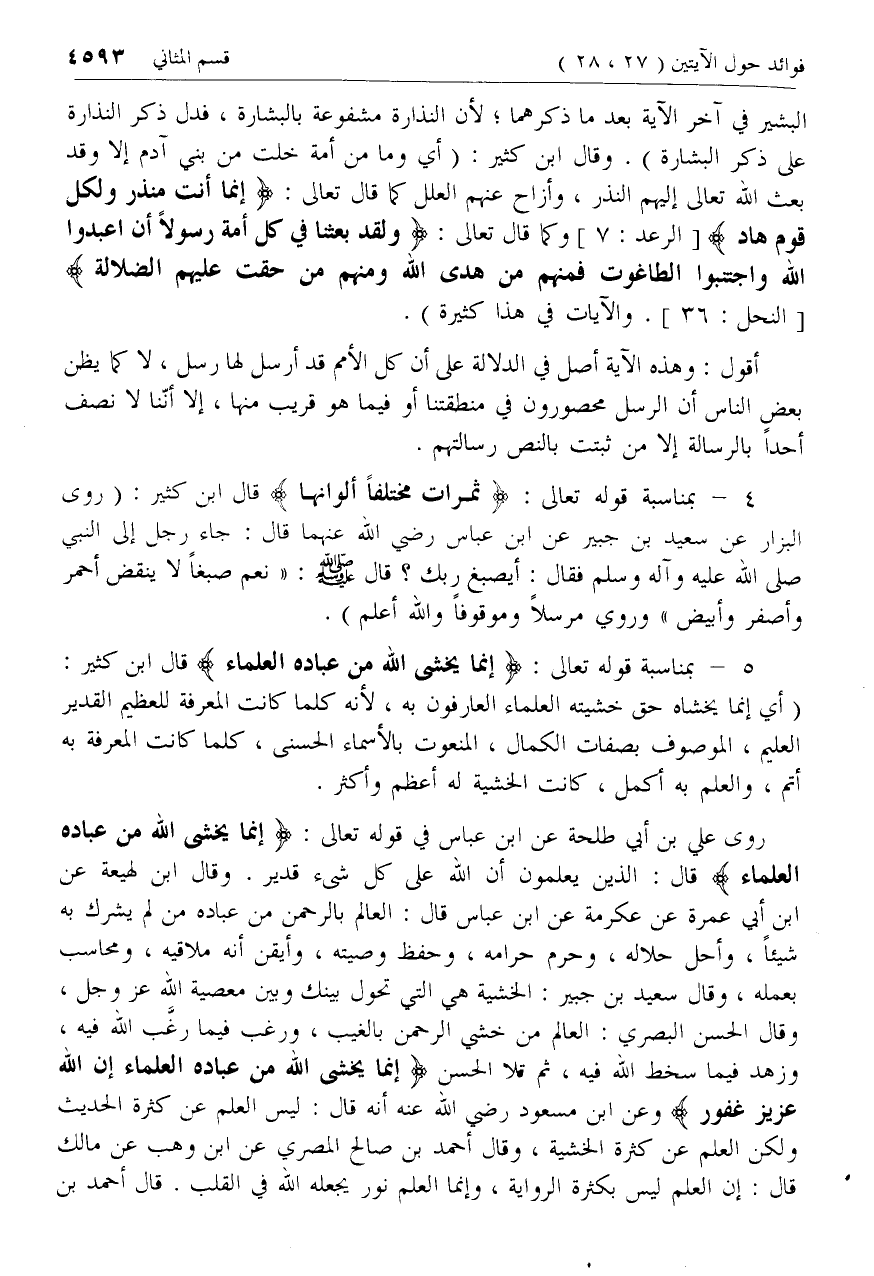 فوائد حول الآيتين ( ٢٧ ، ٢٨ ) قسم المثاني ٤٥٩٣
البشير في آخر الآية بعد ما ذكرهما ؛ لأن النذارة مشفوعة بالبشارة ، فدل ذكر النذارة
على ذكر البشارة ) . وقال ابن كثير : ( أي وما من أمة خلت من بني آدم إلا وقد
بعث الله تعالى إليهم النذر ، وأزاح عنهم العلل كما قال تعالى : ﴿ إنما أنت منذر ولكل
قوم هاد ﴾ [ الرعد : ٧ ] وكما قال تعالى : ﴿ ولقد بعثنا في كل أمة رسولاً أن اعبدوا
الله واجتنبوا الطاغوت فمنهم من هدى الله ومنهم من حقت عليهم الضلالة ﴾
[ النحل : ٣٦ ] . والآيات في هذا كثيرة ) .
أقول : وهذه الآية أصل في الدلالة على أن كل الأمم قد أرسل لها رسل ، لا كما يظن
بعض الناس أن الرسل محصورون في منطقتنا أو فيما هو قريب منها ، إلا أنّنا لا نصف
أحداً بالرسالة إلا من ثبتت بالنص رسالتهم .
٤ – بمناسبة قوله تعالى : ﴿ ثمرات مختلفاً ألوانها ﴾ قال ابن كثير : ( روى
البزار عن سعيد بن جبير عن ابن عباس رضي الله عنهما قال : جاء رجل إلى النبي
صلى الله عليه وآله وسلم فقال : أيصبغ ربك ؟ قال ﷺ : « نعم صبغاً لا ينقض أحمر
وأصفر وأبيض » وروي مرسلاً وموقوفاً والله أعلم ) .
٥ – بمناسبة قوله تعالى : ﴿ إنما يخشى الله من عباده العلماء ﴾ قال ابن كثير :
( أي إنما يخشاه حق خشيته العلماء العارفون به ، لأنه كلما كانت المعرفة للعظيم القدير
العليم ، الموصوف بصفات الكمال ، المنعوت بالأسماء الحسنى ، كلما كانت المعرفة به
أتم ، والعلم به أكمل ، كانت الخشية له أعظم وأكثر .
روى علي بن أبي طلحة عن ابن عباس في قوله تعالى : ﴿ إنما يخشى الله من عباده
العلماء ﴾ قال : الذين يعلمون أن الله على كل شيء قدير . وقال ابن لهيعة عن
ابن أبي عمرة عن عكرمة عن ابن عباس قال : العالم بالرحمن من عباده من لم يشرك به
شيئاً ، وأحل حلاله ، وحرم حرامه ، وحفظ وصيته ، وأيقن أنه ملاقيه ، ومحاسب
بعمله ، وقال سعيد بن جبير : الخشية هي التي تحول بينك وبين معصية الله عز وجل ،
وقال الحسن البصري : العالم من خشي الرحمن بالغيب ، ورغب فيما رغَّب الله فيه ،
وزهد فيما سخط الله فيه ، ثم تلا الحسن ﴿ إنما يخشى الله من عباده العلماء إن الله
عزيز غفور ﴾ وعن ابن مسعود رضي الله عنه أنه قال : ليس العلم عن كثرة الحديث
ولكن العلم عن كثرة الخشية ، وقال أحمد بن صالح المصري عن ابن وهب عن مالك
قال : إن العلم ليس بكثرة الرواية ، وإنما العلم نور يجعله الله في القلب . قال أحمد بن